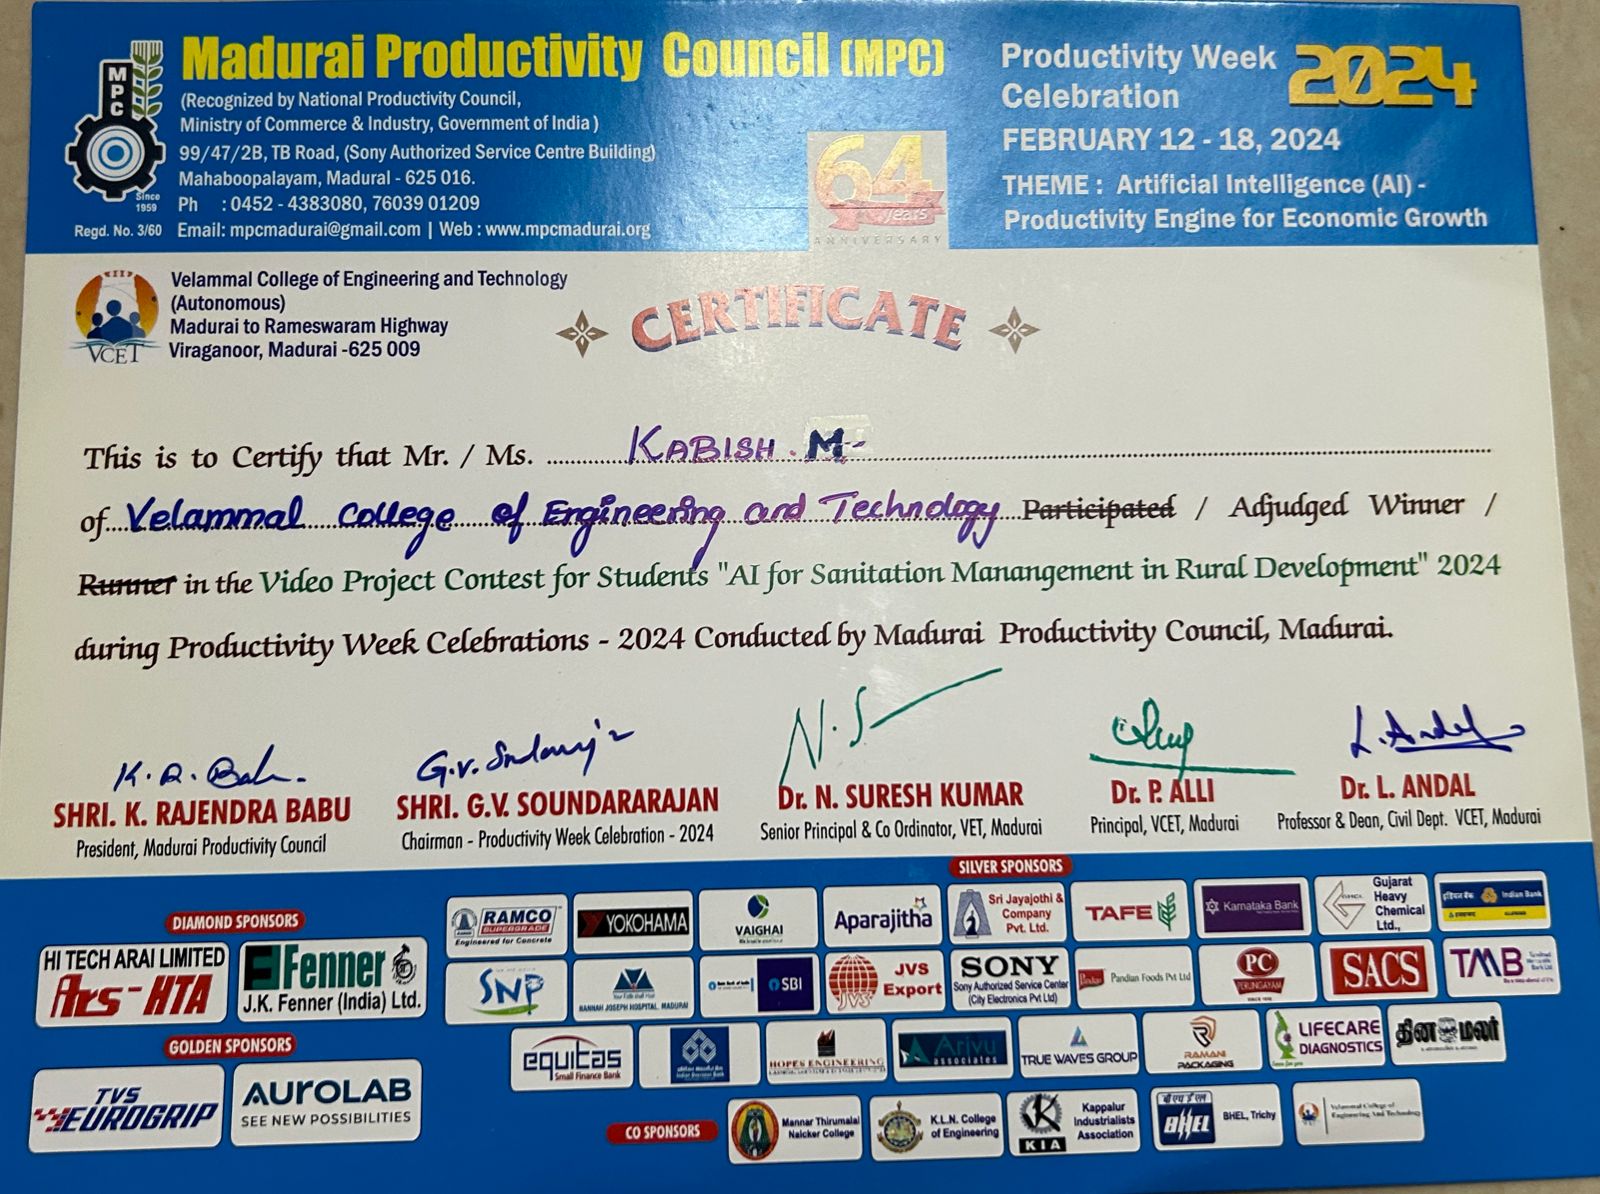 Madurai Productivity Council (MPC)
(Recognized by National Productivity Council,
Ministry of Commerce & Industry, Government of India )
99/47/2B, TB Road, (Sony Authorized Service Centre Building)
Mahaboopalayam, Madural - 625 016.
Ph : 0452 - 4383080, 76039 01209
Email: mpcmadurai@gmail.com | Web : www.mpcmadurai.org
MPC
Since
1959
Regd. No. 3/60
64
Years
ANNIVERSARY
Productivity Week
Celebration
2024
FEBRUARY 12 - 18, 2024
THEME : Artificial Intelligence (AI) -
Productivity Engine for Economic Growth
VCET
Velammal College of Engineering and Technology
(Autonomous)
Madurai to Rameswaram Highway
Viraganoor, Madurai -625 009
CERTIFICATE
This is to Certify that Mr. / Ms. KABISH . M
of Velammal College of Engineering and Technology Participated / Adjudged Winner /
Runner in the Video Project Contest for Students "AI for Sanitation Manangement in Rural Development" 2024
during Productivity Week Celebrations - 2024 Conducted by Madurai Productivity Council, Madurai.
SHRI. K. RAJENDRA BABU
President, Madurai Productivity Council
SHRI. G.V. SOUNDARARAJAN
Chairman - Productivity Week Celebration - 2024
Dr. N. SURESH KUMAR
Senior Principal & Co Ordinator, VET, Madurai
Dr. P. ALLI
Principal, VCET, Madurai
Dr. L. ANDAL
Professor & Dean, Civil Dept. VCET, Madurai
DIAMOND SPONSORS
HI TECH ARAI LIMITED
Ars-HTA
Fenner
J.K. Fenner (India) Ltd.
GOLDEN SPONSORS
TVS
EUROGRIP
AUROLAB
SEE NEW POSSIBILITIES
SILVER SPONSORS
RAMCO
SUPERGRADE
Engineered for Concrete
YOKOHAMA
VAIGHAI
Aparajitha
Sri Jayajothi &
Company
Pvt. Ltd.
TAFE
Karnataka Bank
Gujarat
Heavy
Chemical
Ltd.,
Indian Bank
SNP
HANNAH JOSEPH HOSPITAL, MADURAI
SBI
JVS
JVS
Export
SONY
Sony Authorized Service Center
(City Electronics Pvt Ltd)
Pandian Foods Pvt Ltd
PC
PERUNGAYAM
SACS
TMB
equitas
Small Finance Bank
Indian Overseas Bank
HOPES ENGINEERING
Arivu
associates
TRUE WAVES GROUP
RAMANI
PACKAGING
LIFECARE
DIAGNOSTICS
தினமலர்
CO SPONSORS
Mannar Thirumalai
Naicker College
K.L.N. College
of Engineering
KIA
Kappalur
Industrialists
Association
बीएचईएल
BHEL
BHEL, Trichy
Velammal College of
Engineering And Technology